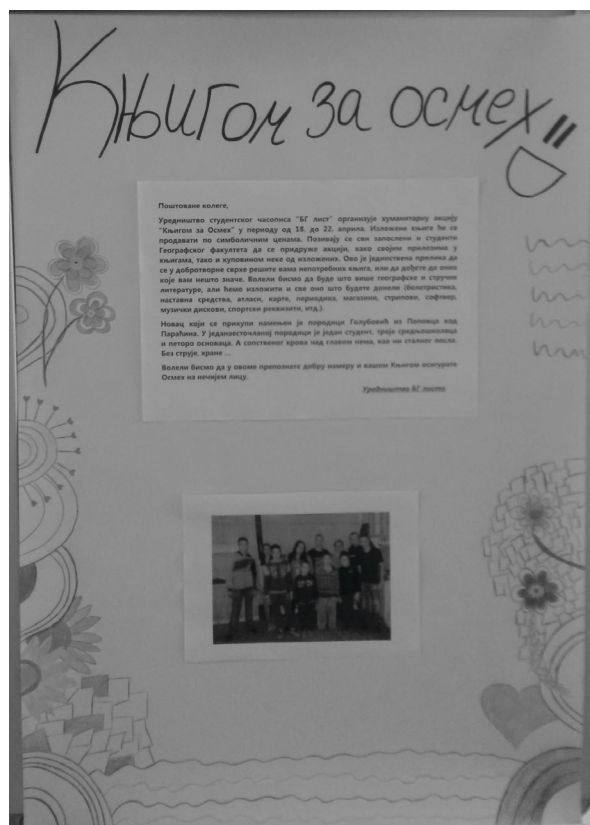 Књигом за осмех
Поштоване колеге,
Уредништво студентског часописа "БГ лист" организује хуманитарну акцију
"Књигом за Осмех" у периоду од 18. до 22. априла. Изложене књиге ће се
продавати по симболичним ценама. Позивају се сви запослени и студенти
Географског факултета да се придруже акцији, како својим прилозима у
књигама, тако и куповином неке од изложених. Ово је јединствена прилика да
се у добротворне сврхе решите вама непотребних књига, или да дођете до оних
које вам нешто значе. Волели бисмо да буде што више географске и стручне
литературе, али ћемо изложити и све оно што будете донели (белетристика,
наставна средства, атласи, карте, периодика, магазини, стрипови, софтвер,
музички дискови, спортски реквизити, итд.).
Новац који се прикупи намењен је породици Голубовић из Поповца код
Параћина. У једанаесточланој породици је један студент, троје средњошколаца
и петоро основаца. А сопственог крова над главом нема, као ни сталног посла.
Без струје, хране ...
Волели бисмо да у овоме препознате добру намеру и вашом Књигом осигурате
Осмех на нечијем лицу.
Уредништво БГ листа